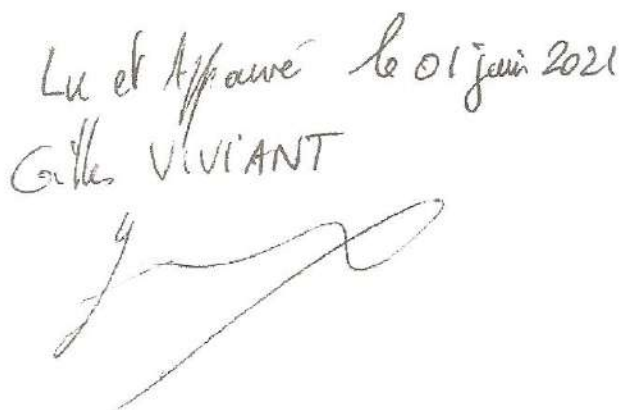 Lu et Approuvé le 01 juin 2021
Gilles VIVIANT